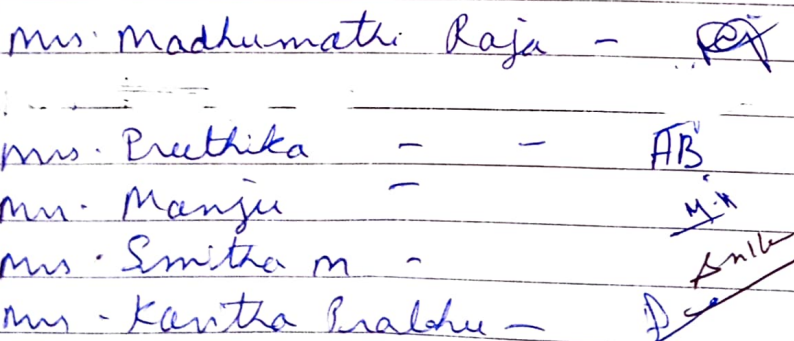 Mrs. Madhumathi Raja -
Mrs. Preethika - - AB
Mrs. Manju - M.H
Mrs. Smitha m -
Mrs - Kavitha Prabhu -